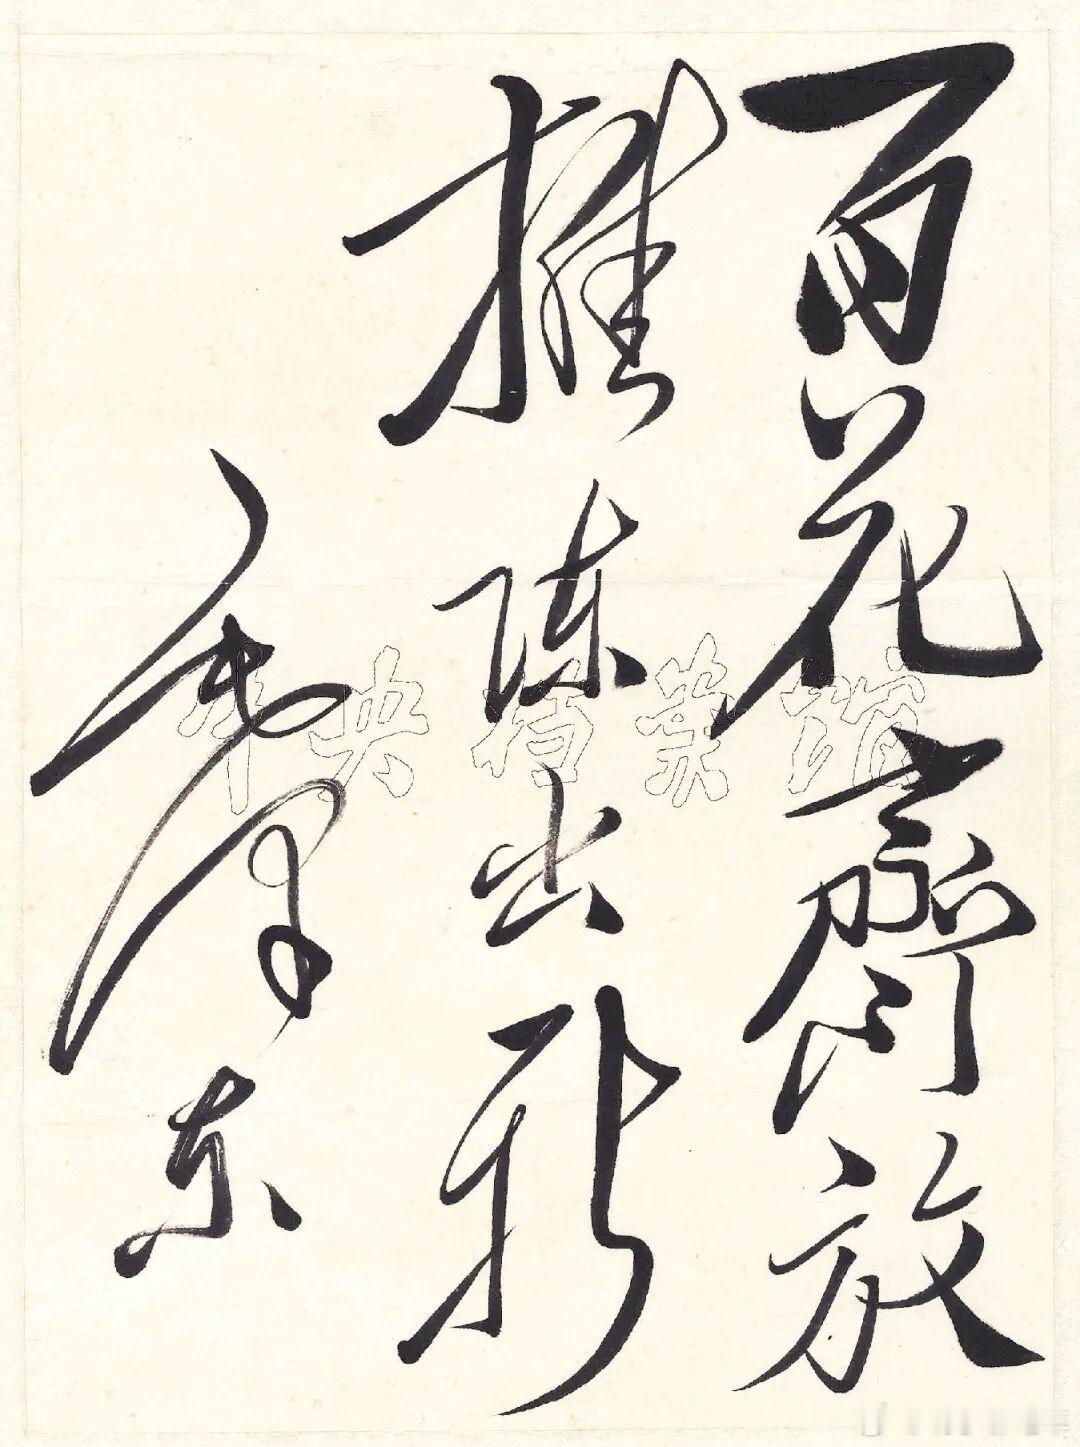 百花齊放
推陈出新
毛泽东
中央档案馆